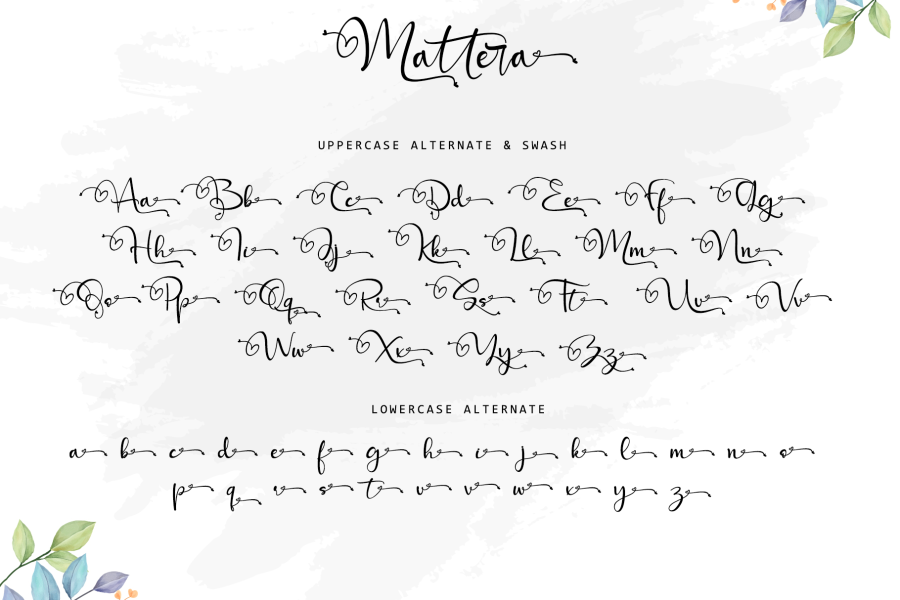 Mattera
UPPERCASE ALTERNATE & SWASH
Aa Bb Cc Dd Ee Ff Gg
Hh Ii Jj Kk Ll Mm Nn
Oo Pp Qq Rr Ss Tt Uu Vv
Ww Xx Yy Zz
LOWERCASE ALTERNATE
a b c d e f g h i j k l m n o
p q r s t u v w x y z